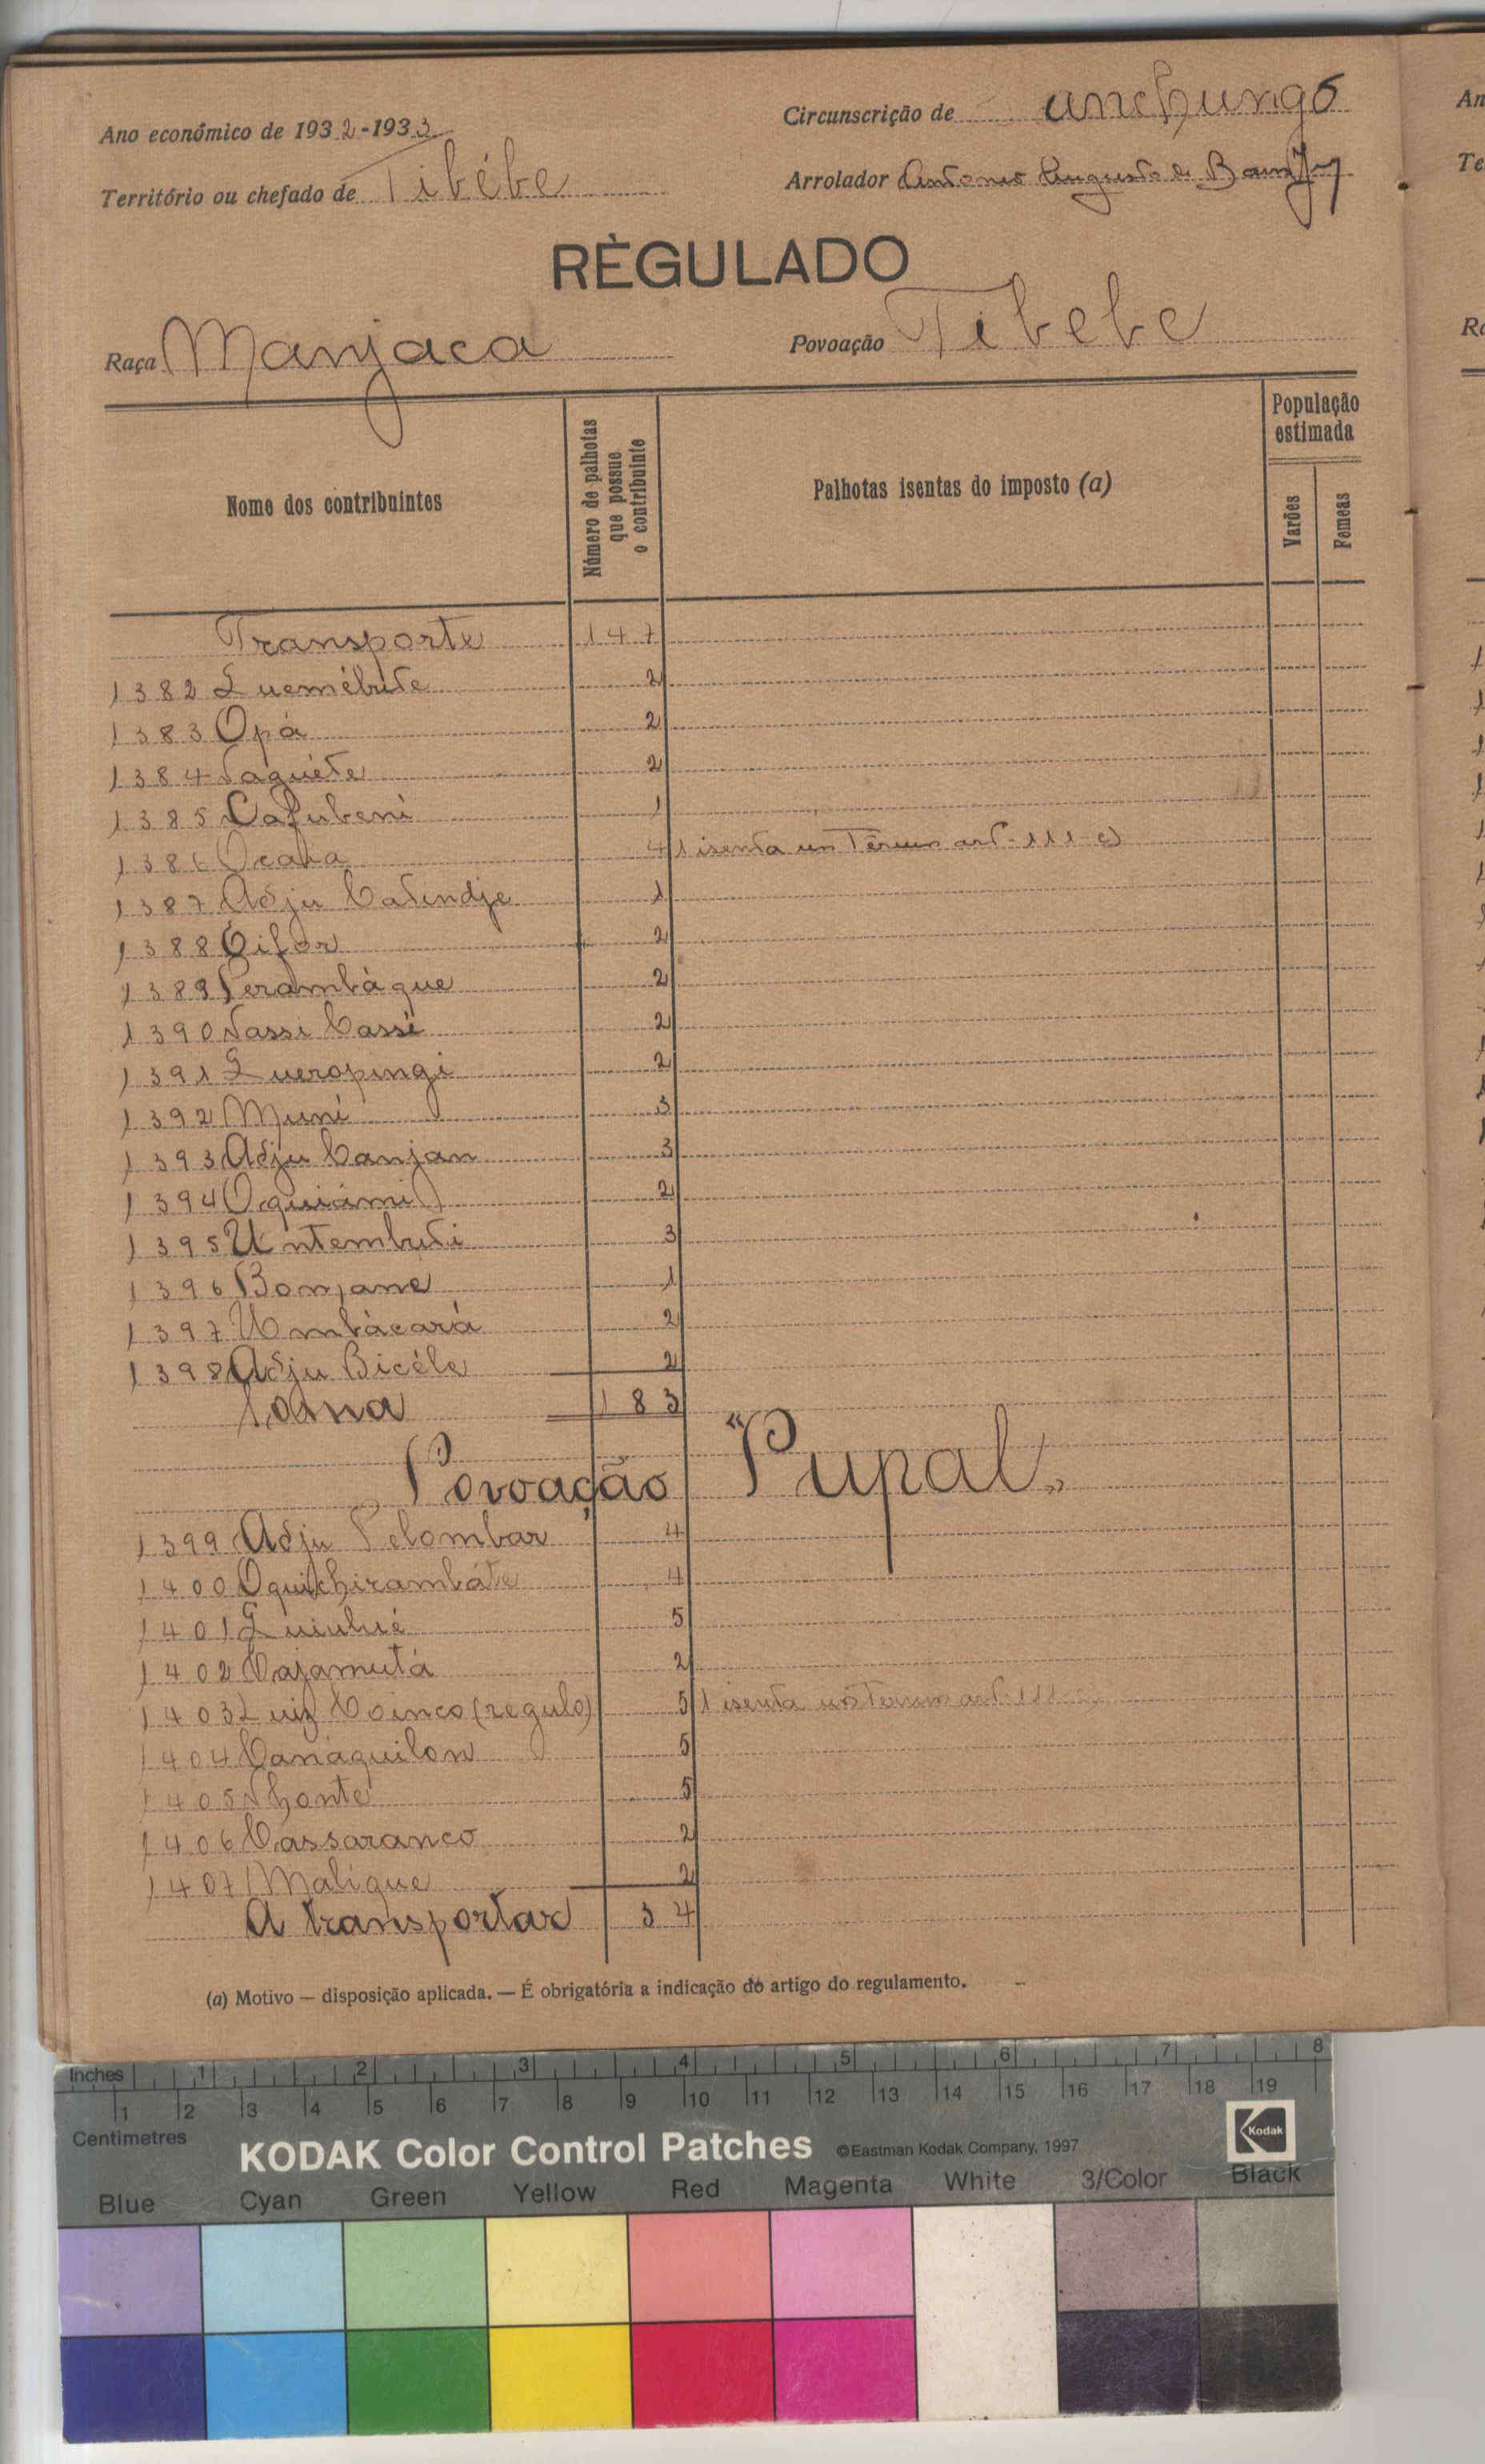 Ano económico de 1932-1933
Circunscrição de anchungo
Território ou chefado de Tibébe
Arrolador Antonio Augusto de
RÈGULADO
Raça Manjaca
Povoação Tibebe
Nome dos contribuintes
Número de palhotas que possue o contribuinte
Palhotas isentas do imposto (a)
População estimada
Varões
Femeas
Transporte 147
1382 Quemébute 2
1383 Opá 2
1384 Naguéte 2
1385 Cafubeni 1
1386 Ocata 4 1 isenta art. 111-c)
1387 Adju Catindje 1
1388 Eifor 2
1389 Perambáque 2
1390 Nassi Cassi 2
1391 Queropingi 2
1392 Muni 3
1393 Adju Canjan 3
1394 Oquiámi 2
1395 Untembuti 3
1396 Bonjane 1
1397 Umbácará 2
1398 Adju Bicéle 2
Soma 183
Povoação "Pupal"
1399 Adju Pelombar 4
1400 Oquichirambáte 4
1401 Quiuhié 5
1402 Cajamutá 2
1403 Luiz Coinco (regulo) 5 1 isenta art. 111
1404 Canáquilon 5
1405 Nhonte 5
1406 Cassaranco 2
1407 Malique 2
A transportar 34
(a) Motivo — disposição aplicada. — É obrigatória a indicação do artigo do regulamento.
Inches 1 2 3 4 5 6 7 8
1 2 3 4 5 6 7 8 9 10 11 12 13 14 15 16 17 18 19
Centimetres
KODAK Color Control Patches ©Eastman Kodak Company, 1997 Kodak
Blue Cyan Green Yellow Red Magenta White 3/Color Black
An
Te